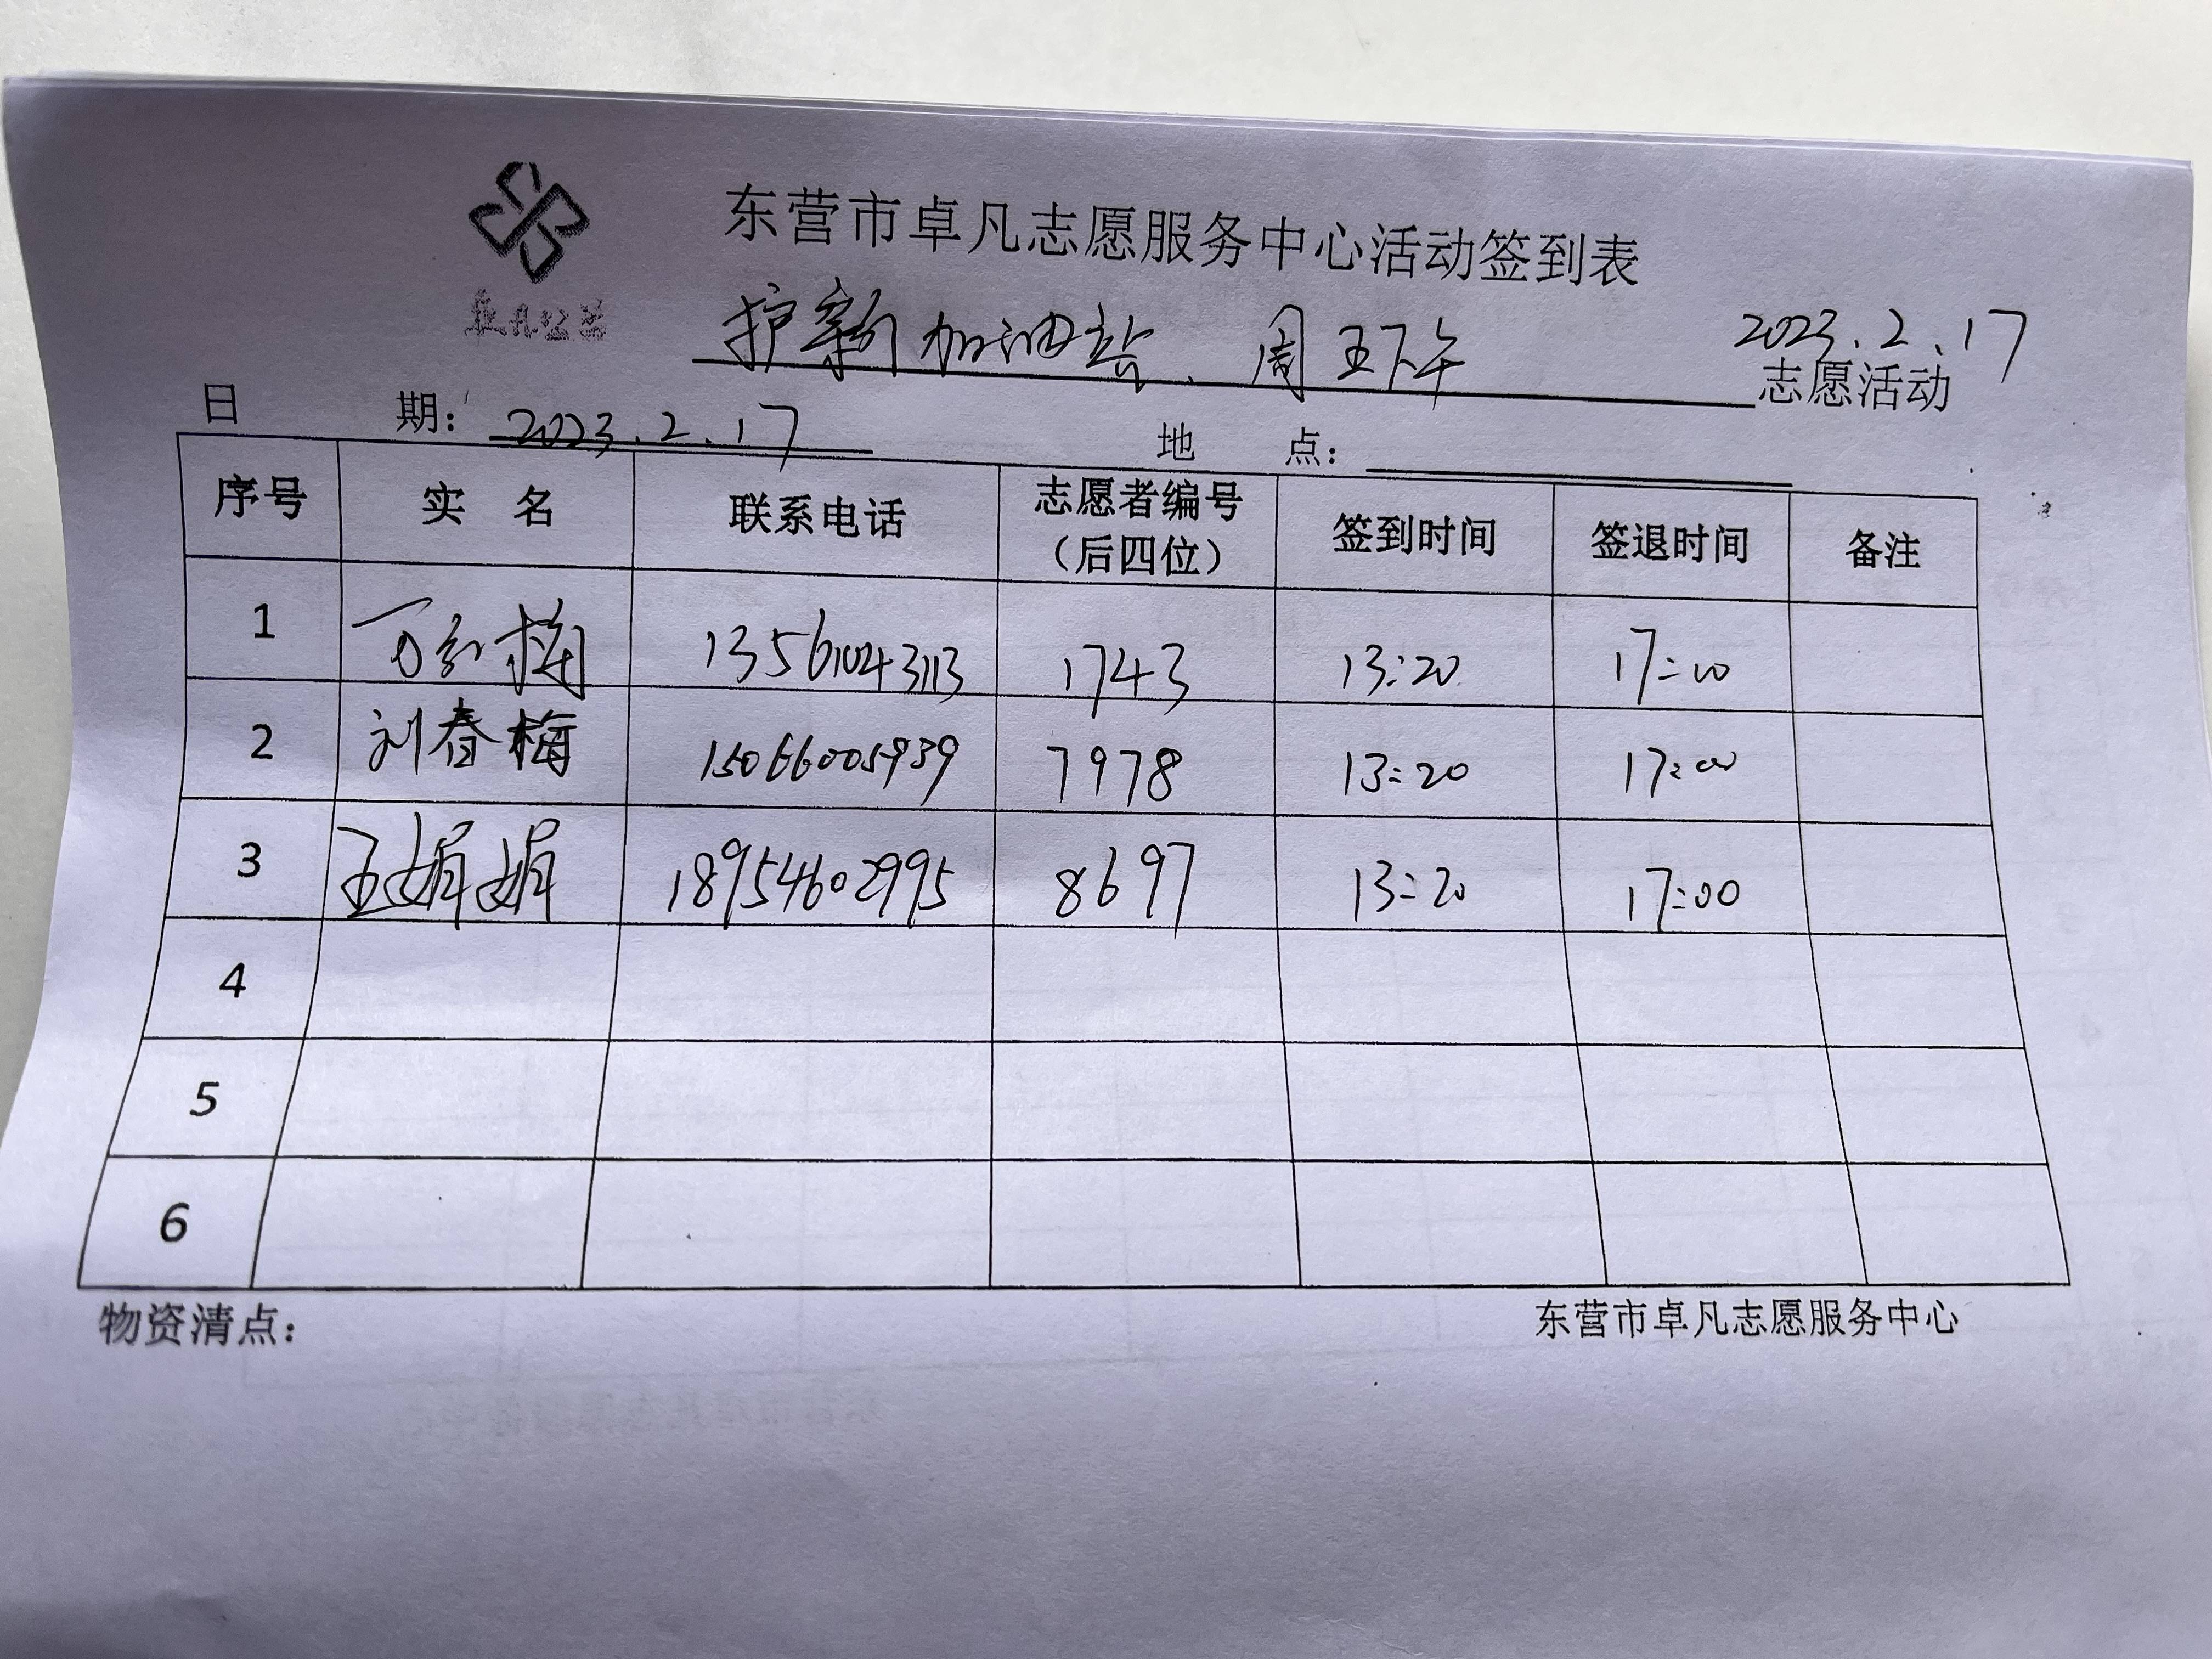 东营市卓凡志愿服务中心活动签到表
卓凡公益
护新加油站、周五下午 2023.2.17
志愿活动
日 期: 2023.2.17 地 点:
序号 实 名 联系电话 志愿者编号（后四位） 签到时间 签退时间 备注
1 万红梅 13561043113 1743 13:20 17:00
2 刘春梅 15066005939 7978 13:20 17:00
3 王娟娟 18954602995 8697 13:20 17:00
4
5
6
物资清点: 东营市卓凡志愿服务中心